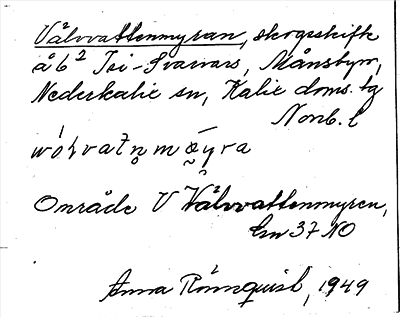 Välvvattenmyran, skogsskifte
å b² Isi-Ivarsars, Månsbyn,
Nederkalix sn, Kalix doms. tg
Norrb. l
Område V Välvvattenmyren,
Em 37 NO
Anna Rönnquist, 1949